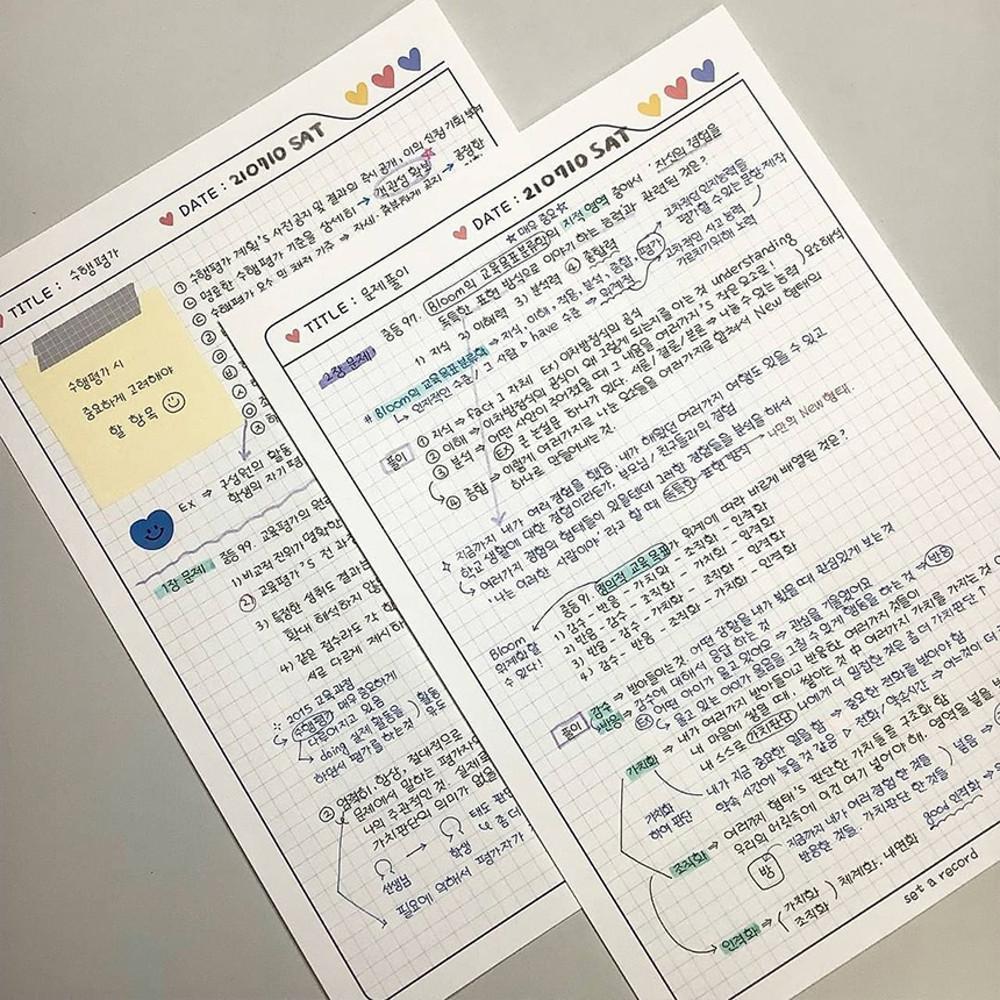 DATE : 210710 SAT
TITLE : 수행평가
① 수행평가 계획's 사전공지 및 결과의 즉시 공개, 이의 신청 기회 부여
명료한 수행평가 기준을 상세히 → 객관성 확보
수행평가 요소 및 채점 기준 → 자세
공정한
수행평가 시
중요하게 고려해야
할 항목
EX ⇒ 구성원의 활동
학생의 자기평
1장 문제
중등 99. 교육평가의 원리
1) 비교적 진위가 명확한
2) 교육평가's 전 과정
3) 특정한 성취도 결과는
확대 해석하지 않
4) 같은 점수라도 각
서로 다르게 제시하
2015 교육과정
수행평가 매우 중요하게
다루어지고 있음
↳ doing 실제 활동을 ) 활동
하면서 평가를 하는것 유도
② 엄격히, 항상, 절대적으로
문제에서 말하는 평가자의
나의 주관적인 것.
가치판단의 의미가 없을
선생님 → 학생
태도
좀 더
필요에 의해서 평가자가
DATE : 210710 SAT
TITLE : 문제풀이
☆ 매우 중요 ☆
2장 문제
중등 97. Bloom의 교육목표분류학의 지적 영역 중에서 '자신의 경험을
독특한 표현 방식으로 이야기 하는 능력'과 관련된 것은?
1) 지식 2) 이해력 3) 분석력 ④ 종합력
# Bloom의 교육목표분류학 → 지식, 이해, 적용, 분석, 종합, 평가 → 위계적
고차적인 인지능력을
평가할 수 있는 문항 제작
고차적인 사고 능력
가르치기위해 노력
↳ 인지적인 수준 / 그 사람 ▷ have 수준
풀이
① 지식 → fact 그 자체 Ex) 이차방정식의 공식
② 이해 → 이차방정식의 공식이 왜 그렇게 되는지를 아는 것 understanding
③ 분석 → 어떤 사안이 주어졌을 때 그 내용을 여러가지's 작은 요소로! ) 요소해석
EX 큰 논설문 하나가 있다. 서론 / 결론 / 본론 → 나눌 수 있는 능력
④ 종합 → 이렇게 여러가지로 나눈 요소들을 여러가지로 합쳐서 New 형태의
하나로 만들어내는 것.
지금까지 내가 여러 경험을 했음 내가 해왔던 여러가지 여행도 있을 수 있고
학교 생활에 대한 경험이라든가, 부모님 / 친구들과의 경험
여러가지 경험의 형태들이 있을텐데 그러한 경험들을 분석을 해서
'나는 이러한 사람이야' 라고 할 때 독특한 표현 방식 → 나만의 New형태.
중등 91. 정의적 교육 목표가 위계에 따라 바르게 배열된 것은?
1) 감수 - 반응 - 가치화 - 조직화 - 인격화
2) 반응 - 감수 - 조직화 - 가치화 - 인격화
3) 반응 - 감수 - 가치화 - 조직화 - 인격화
4) 감수 - 반응 - 조직화 - 가치화 - 인격화
Bloom
위계화 할
수 있다!
풀이
감수 ⇒ 받아들이는 것. 어떤 상황을 내가 봤을 때 관심있게 보는 것
반응 ⇒ 감수에 대해서 응답 하는 것
EX 어떤 아이가 울고 있어요 → 관심을 기울였어요
↳ 울고 있는 아이가 울음을 그칠 수 있게 행동을 하는 것 → 반응
가치화 ⇒ 내가 여러가지 받아들이고 반응한 여러가지 것들이
내 마음에 쌓일 때, 쌓이는 것 中 여러가지 가치를 가지는 것
내 스스로 가치판단 나에게 더 밀접한 것은 좀 더 가치판단 ↑
가치화 하여 판단
내가 지금 중요한 일을 함 → 중요한 전화를 받아야 함
약속 시간에 늦을 것 같음 ▷ 전화 / 약속시간 → 어느것이 더
조직화 ⇒ 여러가지 형태's 판단한 가치들을 구조화 함
우리의 머릿속에 이건 여기 넣어야 해. 영역을 넓
방
지금까지 내가 여러 경험 한 것들 ) 넓음 →
반응한 것들. 가치판단 한 것들
good 인격화
인격화 ⇒ ( 가치화 조직화 ) 체계화. 내면화
set a record